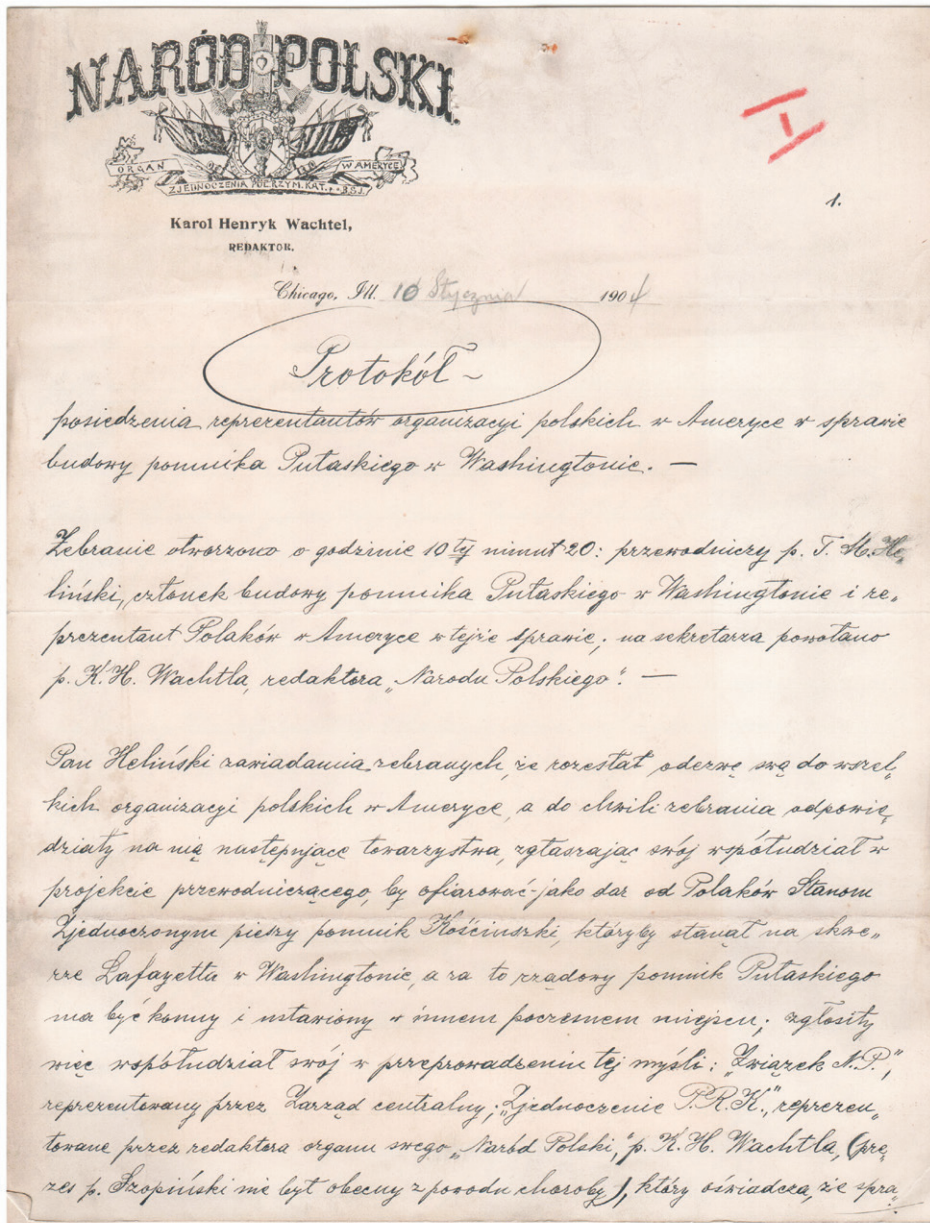 NARÓD POLSKI.
ORGAN
W AMERYCE
ZJEDNOCZENIA POL. RZYM. KAT.
I
1.
Karol Henryk Wachtel,
REDAKTOR.
Chicago, Ill. 10 Stycznia 1904
Protokół ~
posiedzenia reprezentantów organizacyi polskich w Ameryce w sprawie
budowy pomnika Pułaskiego w Washingtonie. —
Zebranie otworzono o godzinie 10 tej minut 20: przewodniczy p. T. M. He„
liński, członek budowy pomnika Pułaskiego w Washingtonie i re„
prezentant Polaków w Ameryce w tejże sprawie; na sekretarza powołano
p. K. H. Wachtla, redaktora „Narodu Polskiego". —
Pan Heliński zawiadamia zebranych, że rozesłał odezwę swą do wszel„
kich organizacyi polskich w Ameryce, a do chwili zebrania odpowie„
działy na nią następujące towarzystwa, zgłaszając swój współudział w
projekcie przewodniczącego, by ofiarować jako dar od Polaków Stanom
Zjednoczonym pieszy pomnik Kościuszki, któryby stanął na skwe„
rze Lafayetta w Washingtonie, a za to rządowy pomnik Pułaskiego
ma być konny i ustawiony w innem poczesnem miejscu; zgłosiły
więc współudział swój w przeprowadzeniu tej myśli: „Związek N. P.",
reprezentowany przez Zarząd centralny; „Zjednoczenie P. R. K.", reprezen„
towane przez redaktora organu swego „Naród Polski," p. K. H. Wachtla, (pre„
zes p. Szopiński nie był obecny z powodu choroby), który oświadcza, że spra„